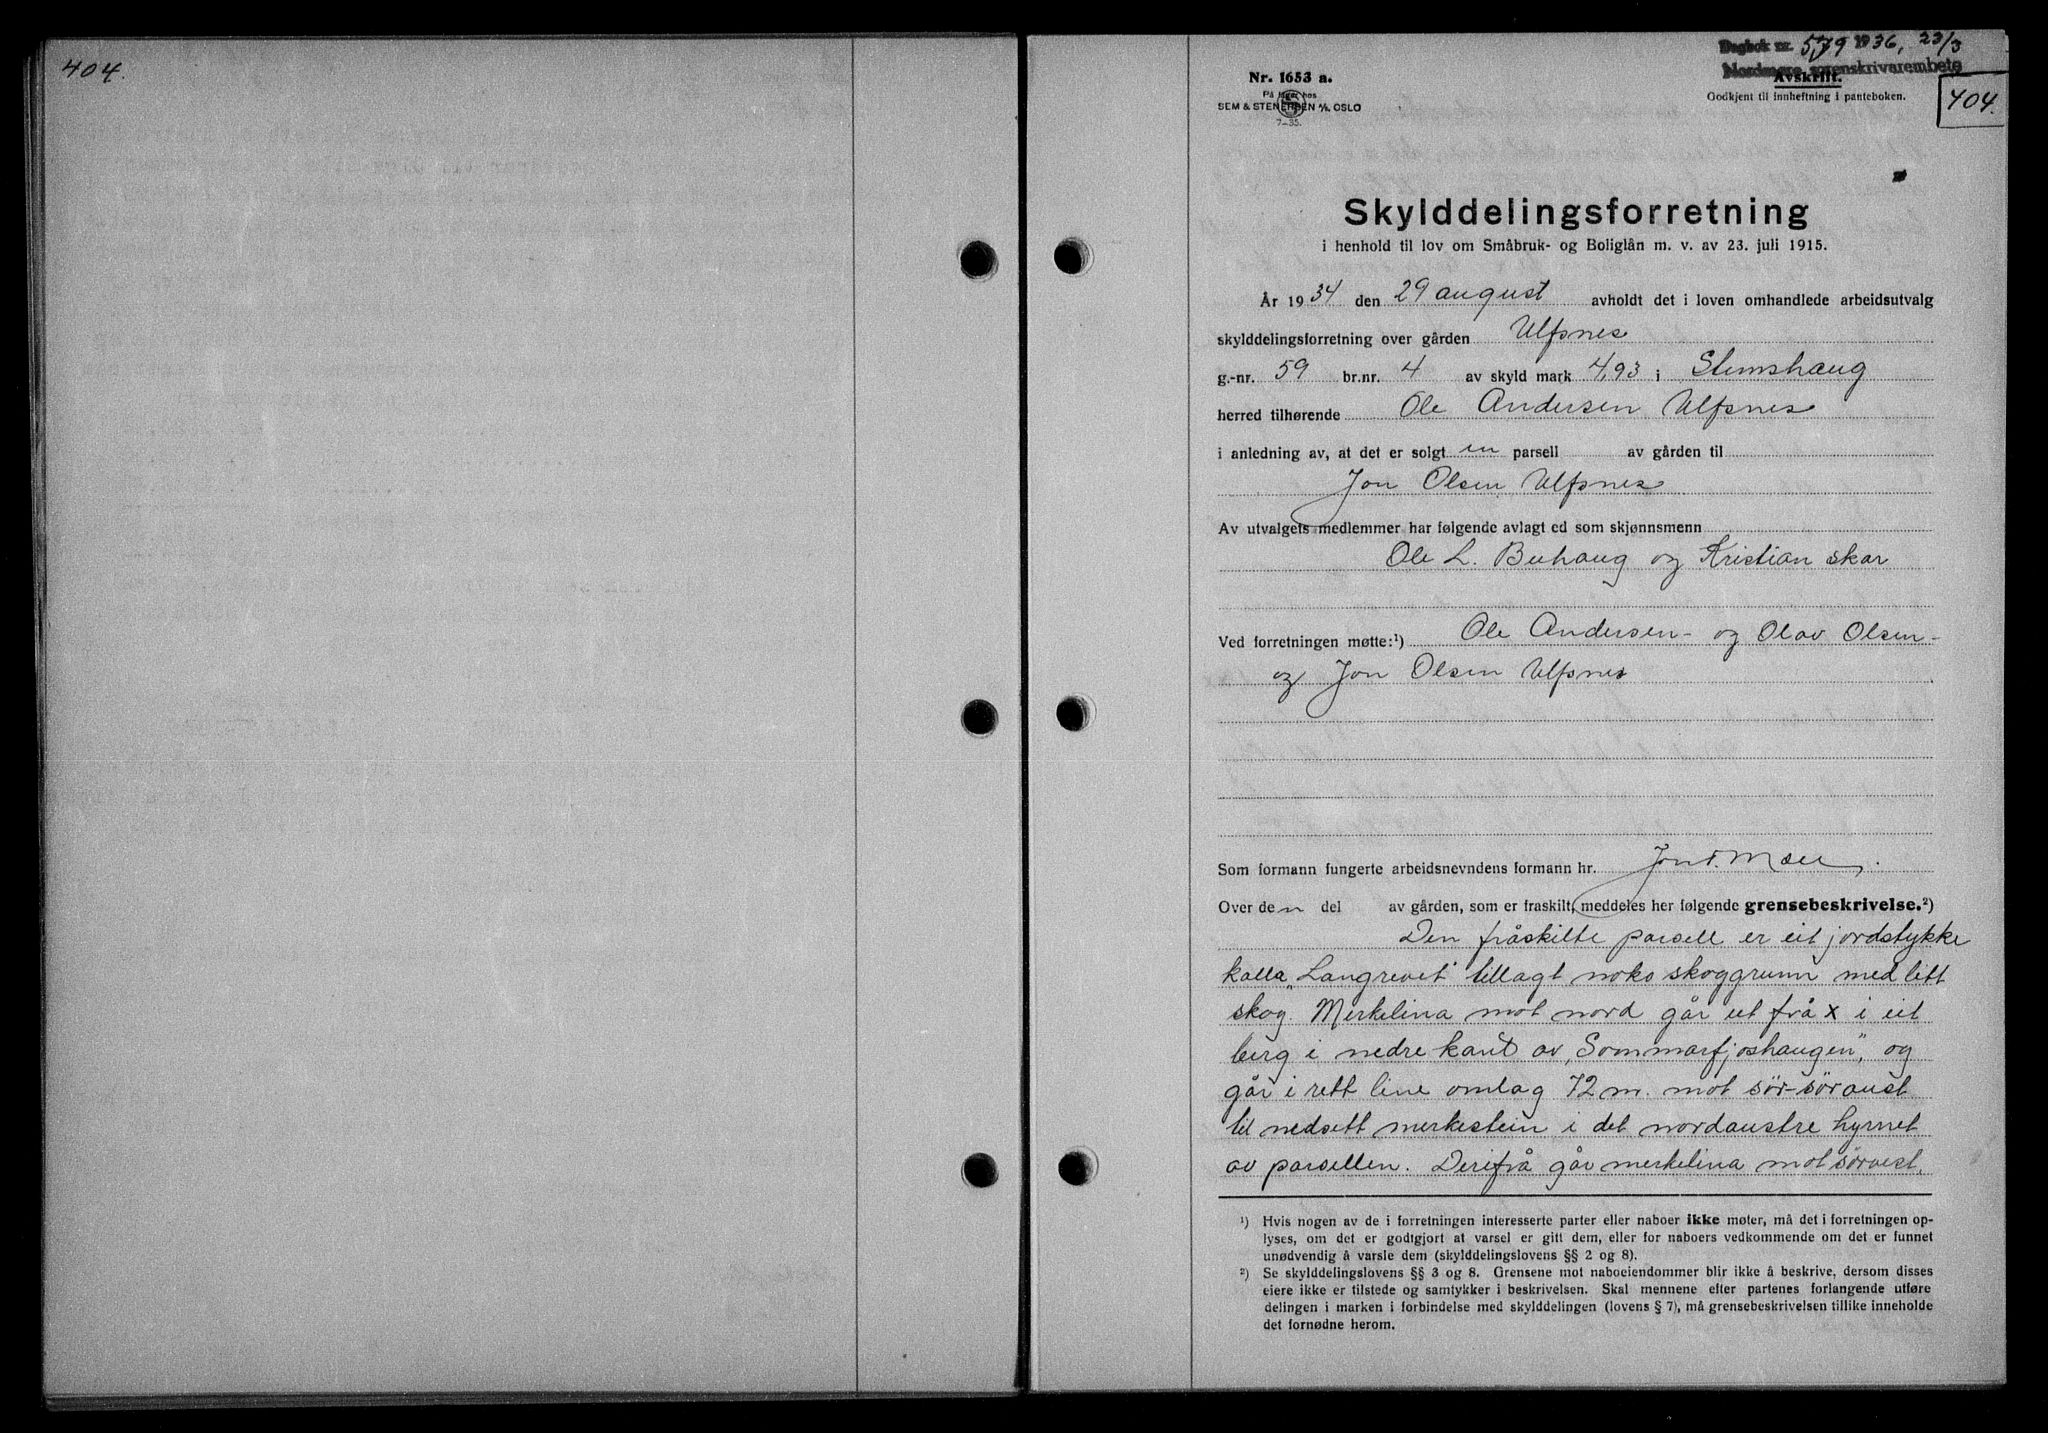 404.
Dagbok nr. 579 1936, 23/3
Nordmøre sorenskrivarembete
Nr. 1653 a.
Avskrift.
På lager hos
Godkjent til innheftning i panteboken.
404.
SEM & STENERSEN A/S, OSLO
7-35.
Skylddelingsforretning
i henhold til lov om Småbruk- og Boliglån m. v. av 23. juli 1915.
År 1934 den 29 august avholdt det i loven omhandlede arbeidsutvalg
skylddelingsforretning over gården Ulfsnes
g.-nr. 59 br.nr. 4 av skyld mark 4,93 i Stemshaug
herred tilhørende Ole Andersen Ulfsnes
i anledning av, at det er solgt en parsell av gården til
Jon Olsen Ulfsnes
Av utvalgets medlemmer har følgende avlagt ed som skjønnsmenn
Ole L. Buhaug og Kristian Skar
Ved forretningen møtte:¹) Ole Andersen- og Olav Olsen-
og Jon Olsen Ulfsnes
Som formann fungerte arbeidsnevndens formann hr. Jon
Over den del av gården, som er fraskilt, meddeles her følgende grensebeskrivelse.²)
Den fråskilte parsell er eit jordstykke
kalla „Langrevet" tillagt noko skoggrunn med litt
skog. Merkelina mot nord går ut frå x i eit
berg i nedre kant av „Sommarfjoshaugen", og
går i rett line omlag 72 m. mot sør-søraust
til nedsett merkestein i det nordaustre hyrnet
av parsellen. Derifrå går merkelina mot sørvest.
¹) Hvis nogen av de i forretningen interesserte parter eller naboer ikke møter, må det i forretningen op-
lyses, om det er godtgjort at varsel er gitt dem, eller for naboers vedkommende om det er funnet
unødvendig å varsle dem (skylddelingslovens §§ 2 og 8).
²) Se skylddelingslovens §§ 3 og 8. Grensene mot naboeiendommer blir ikke å beskrive, dersom disses
eiere ikke er tilstede og samtykker i beskrivelsen. Skal mennene efter partenes forlangende utføre
delingen i marken i forbindelse med skylddelingen (lovens § 7), må grensebeskrivelsen tillike inneholde
det fornødne herom.